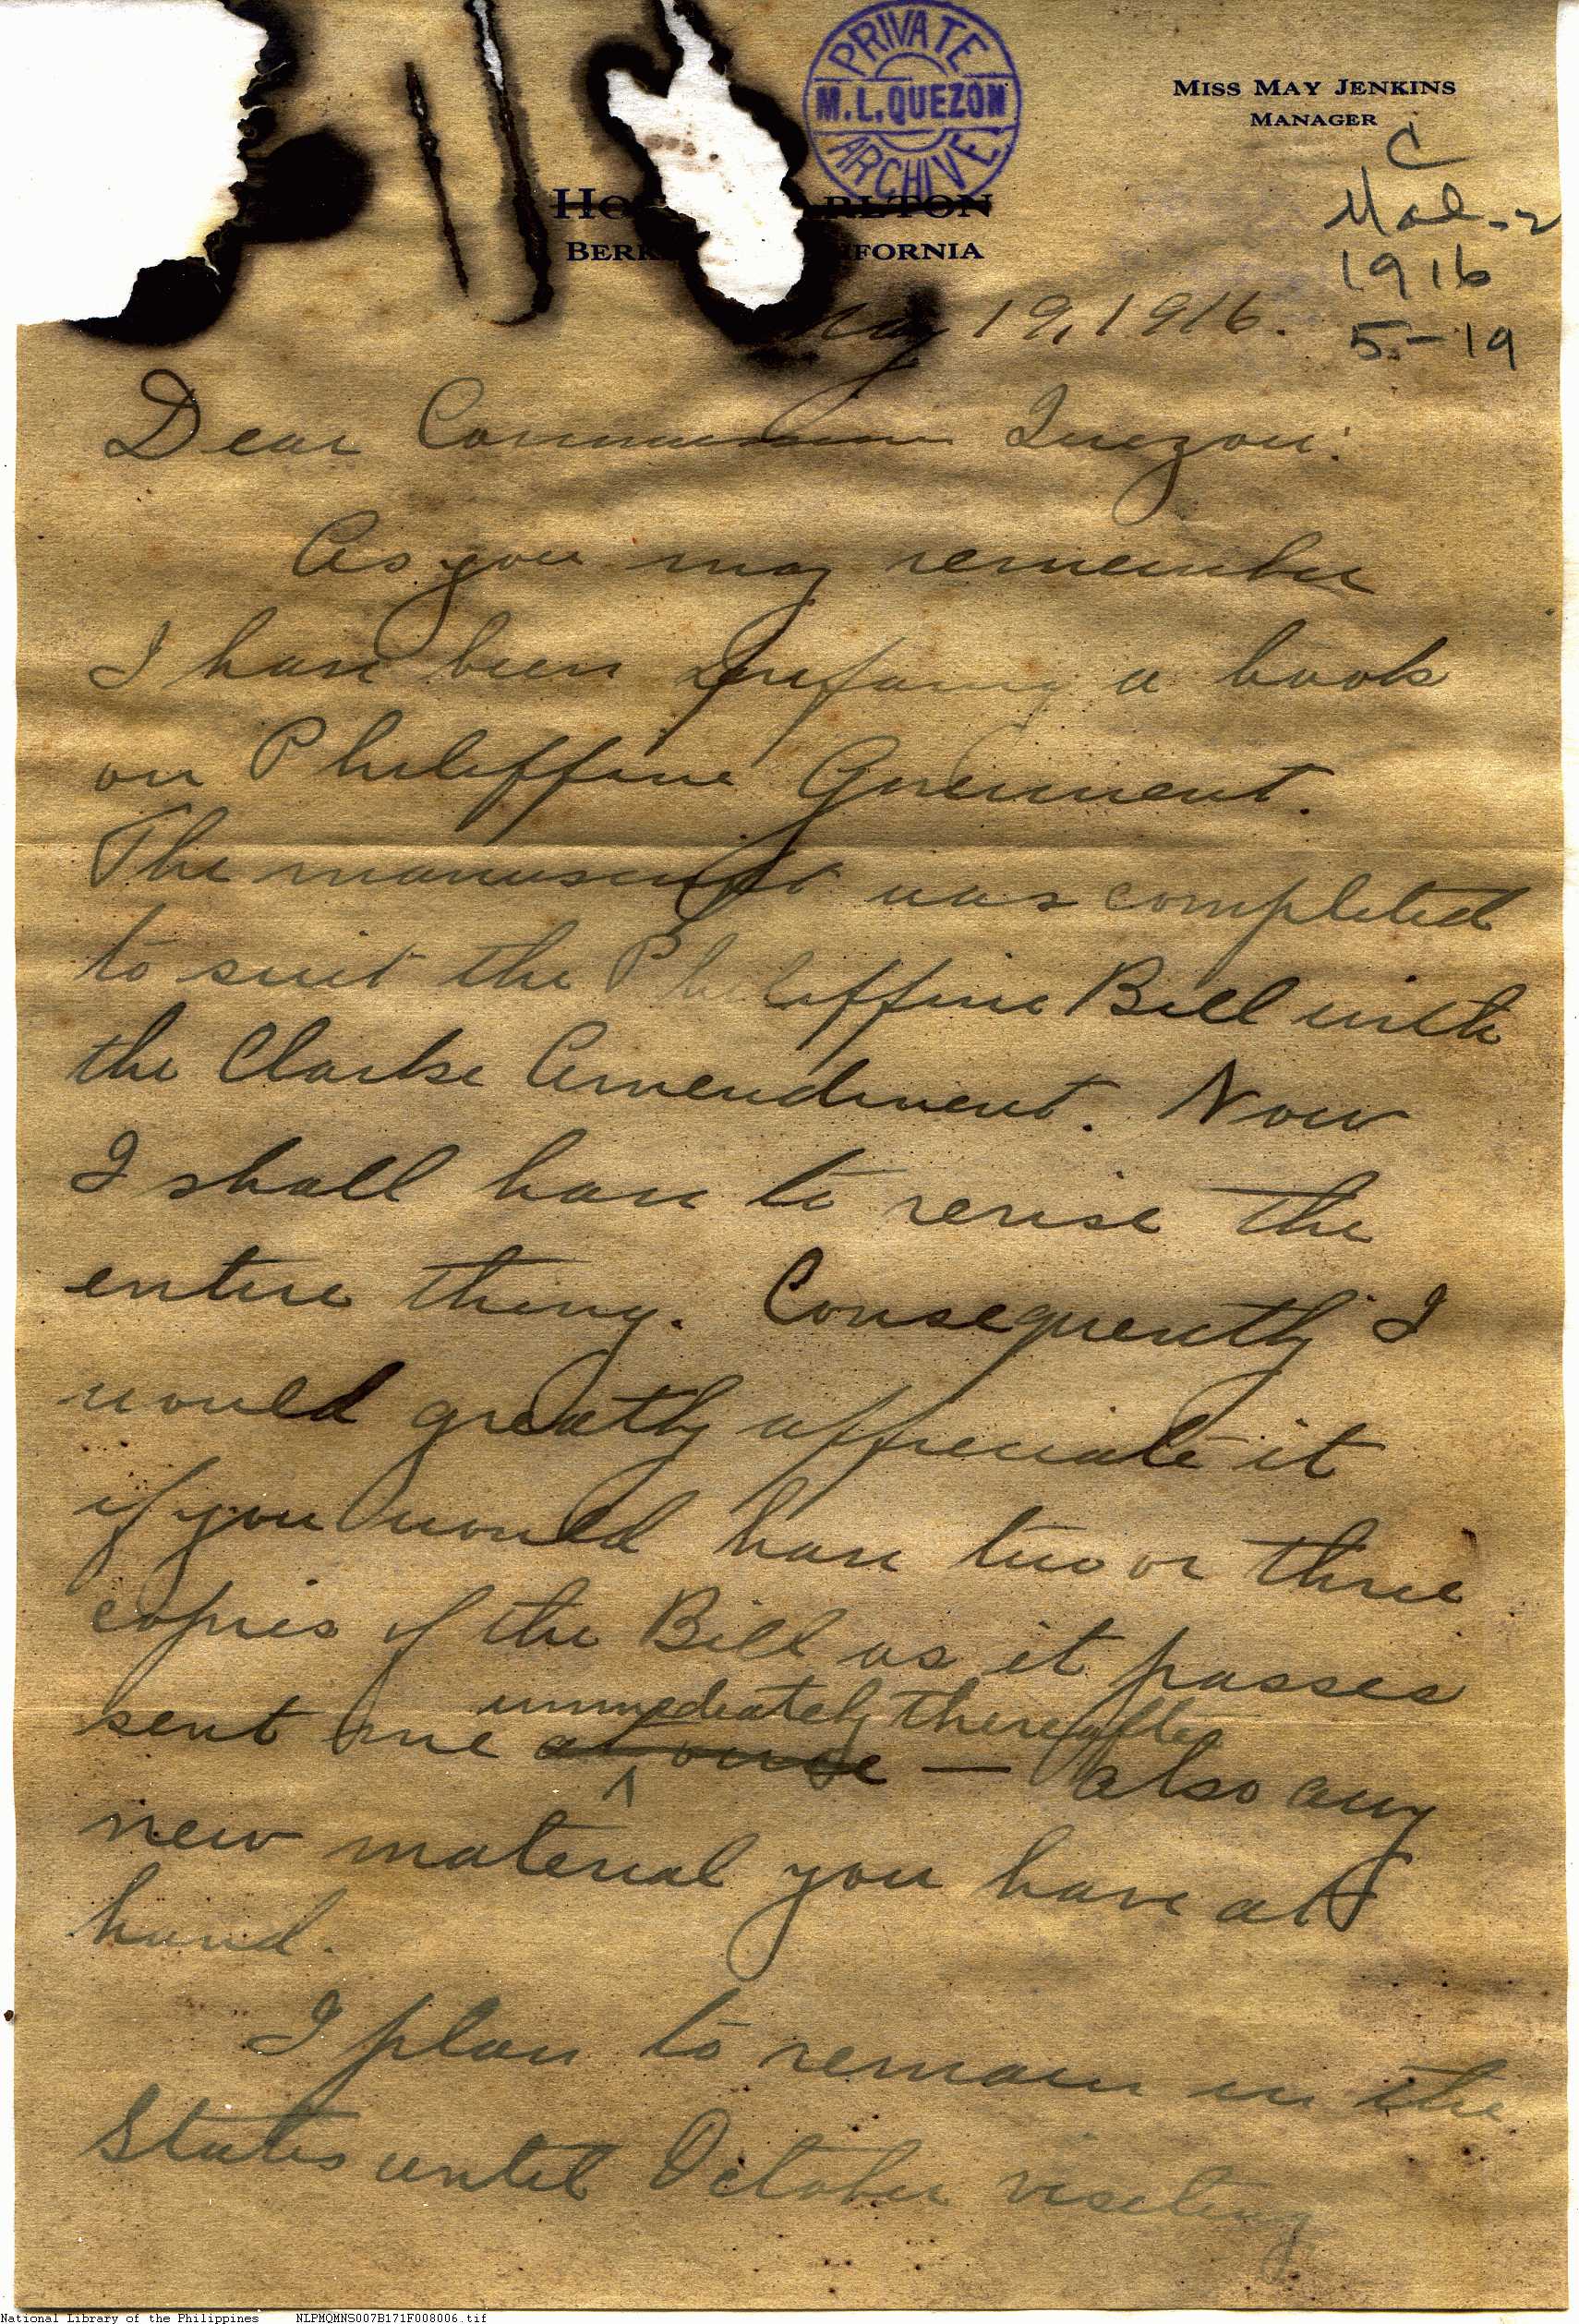 PRIVATE
M.L.QUEZON
ARCHIVE
MISS MAY JENKINS
MANAGER
C
1916
5-19
HO RLTON
BERK IFORNIA
May 19, 1916.
Dear Quezon:
As you may remember
I have been preparing a book
on Philippine Government.
The manuscript was completed
to suit the Philippine Bill with
the Clarke Amendment. Now
I shall have to revise the
entire thing. Consequently I
would greatly appreciate it
if you would have two or three
copies of the Bill as it passes
immediately thereafter
sent me at once — also any
new material you have at
hand.
I plan to remain in the
States until October visiting
National Library of the Philippines NLPMQMNS007B171F008006.tif